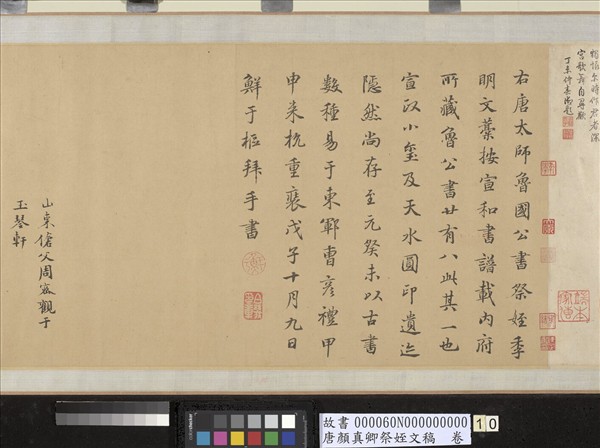 丁未仲春御題
右唐太師魯國公書祭姪季
明文藁按宣和書譜載內府
所藏魯公書廿有八此其一也
宣政小璽及天水圓印遺迹
隱然尚存至元癸未以古書
數種易于東鄆曹彥禮甲
申来杭重裝戊子十月九日
鮮于樞拜手書
山東傖父周密觀于
玉琴軒
故書 000060N000000000 10
唐顏真卿祭姪文稿 卷